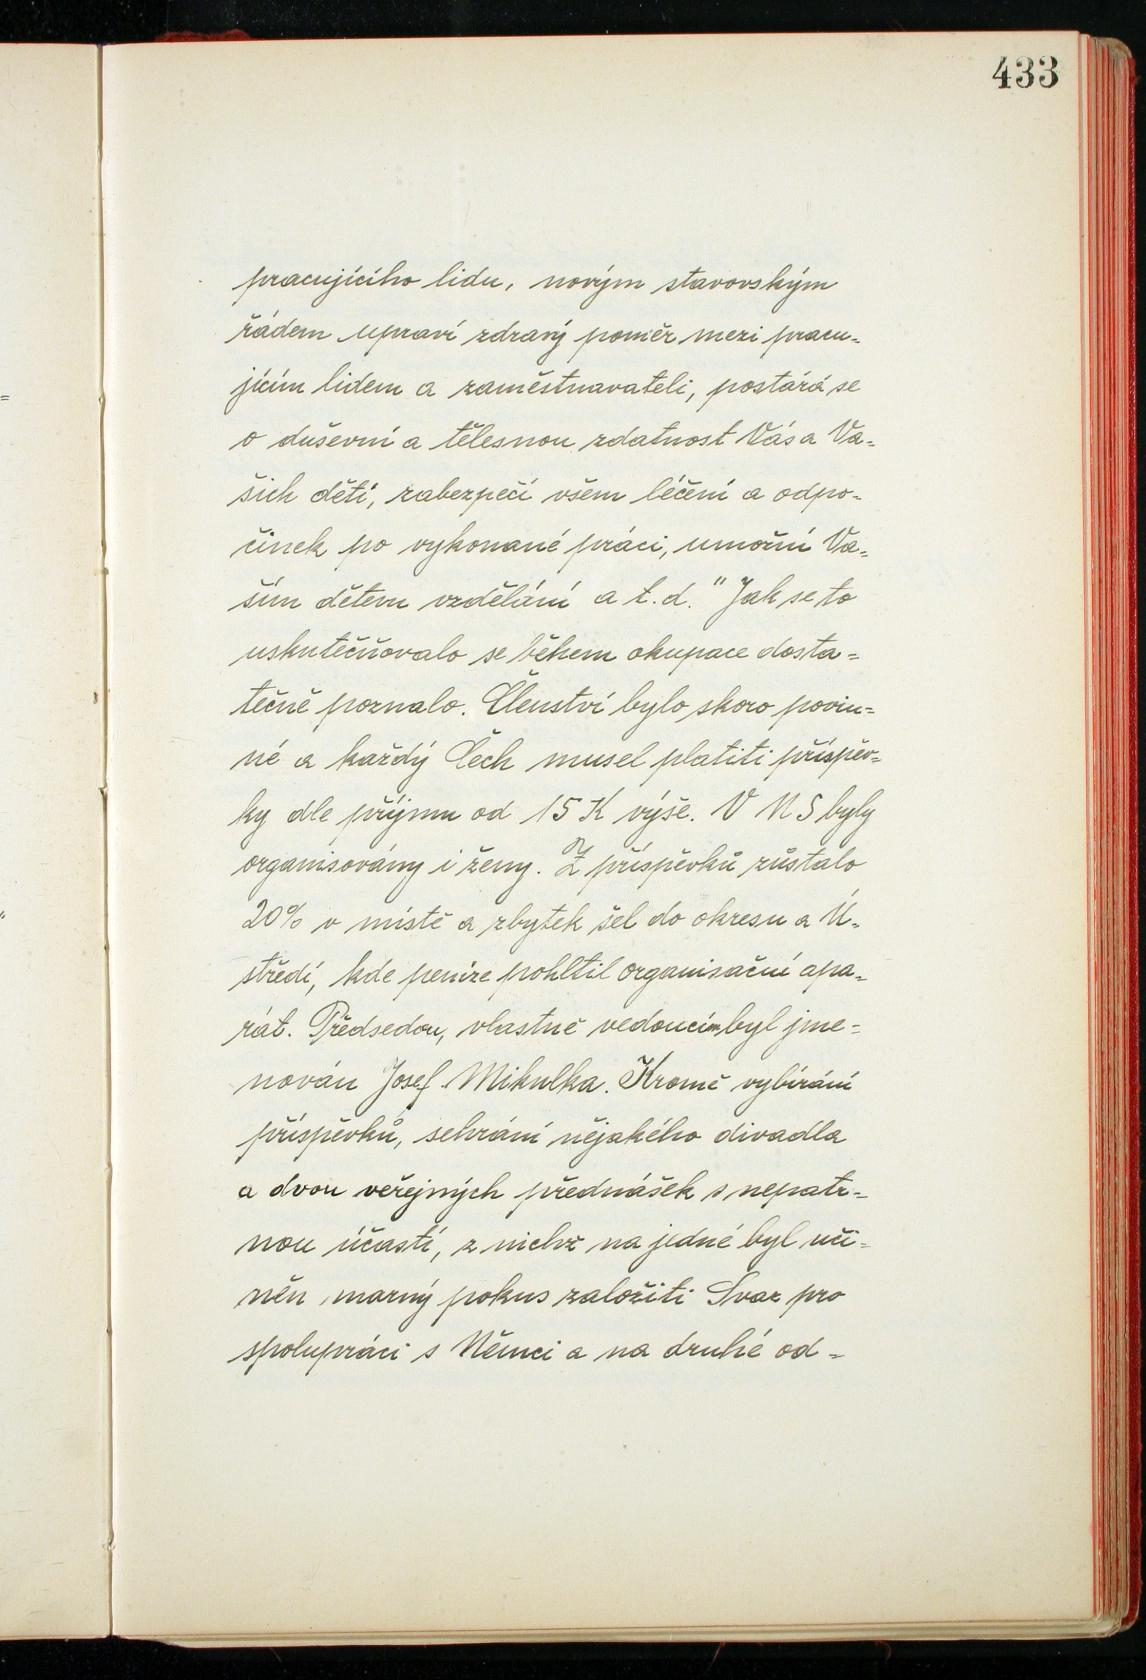 433
pracujícího lidu, novým stavovským
řádem upraví zdravý poměr mezi pracu=
jícím lidem a zaměstnavateli, postará se
o duševní a tělesnou zdatnost Vás a Va=
šich dětí, zabezpečí všem léčení a odpo=
činek po vykonané práci, umožní Va=
šim dětem vzdělání a t.d." Jak se to
uskutečňovalo se během okupace dosta=
tečně poznalo. Členství bylo skoro povin=
né a každý Čech musel platiti příspěv=
ky dle příjmu od 15 K výše. V NS byly
organisovány i ženy. Z příspěvků zůstalo
20% v místě a zbytek šel do okresu a Ú=
středí, kde peníze pohltil organisační apa=
rát. Předsedou, vlastně vedoucím byl jme=
nován Josef Mikulka. Kromě vybírání
příspěvků, sehrání nějakého divadla
a dvou veřejných přednášek s nepatr=
nou účastí, z nichž na jedné byl uči=
něn marný pokus založiti Svaz pro
spolupráci s Němci a na druhé od=